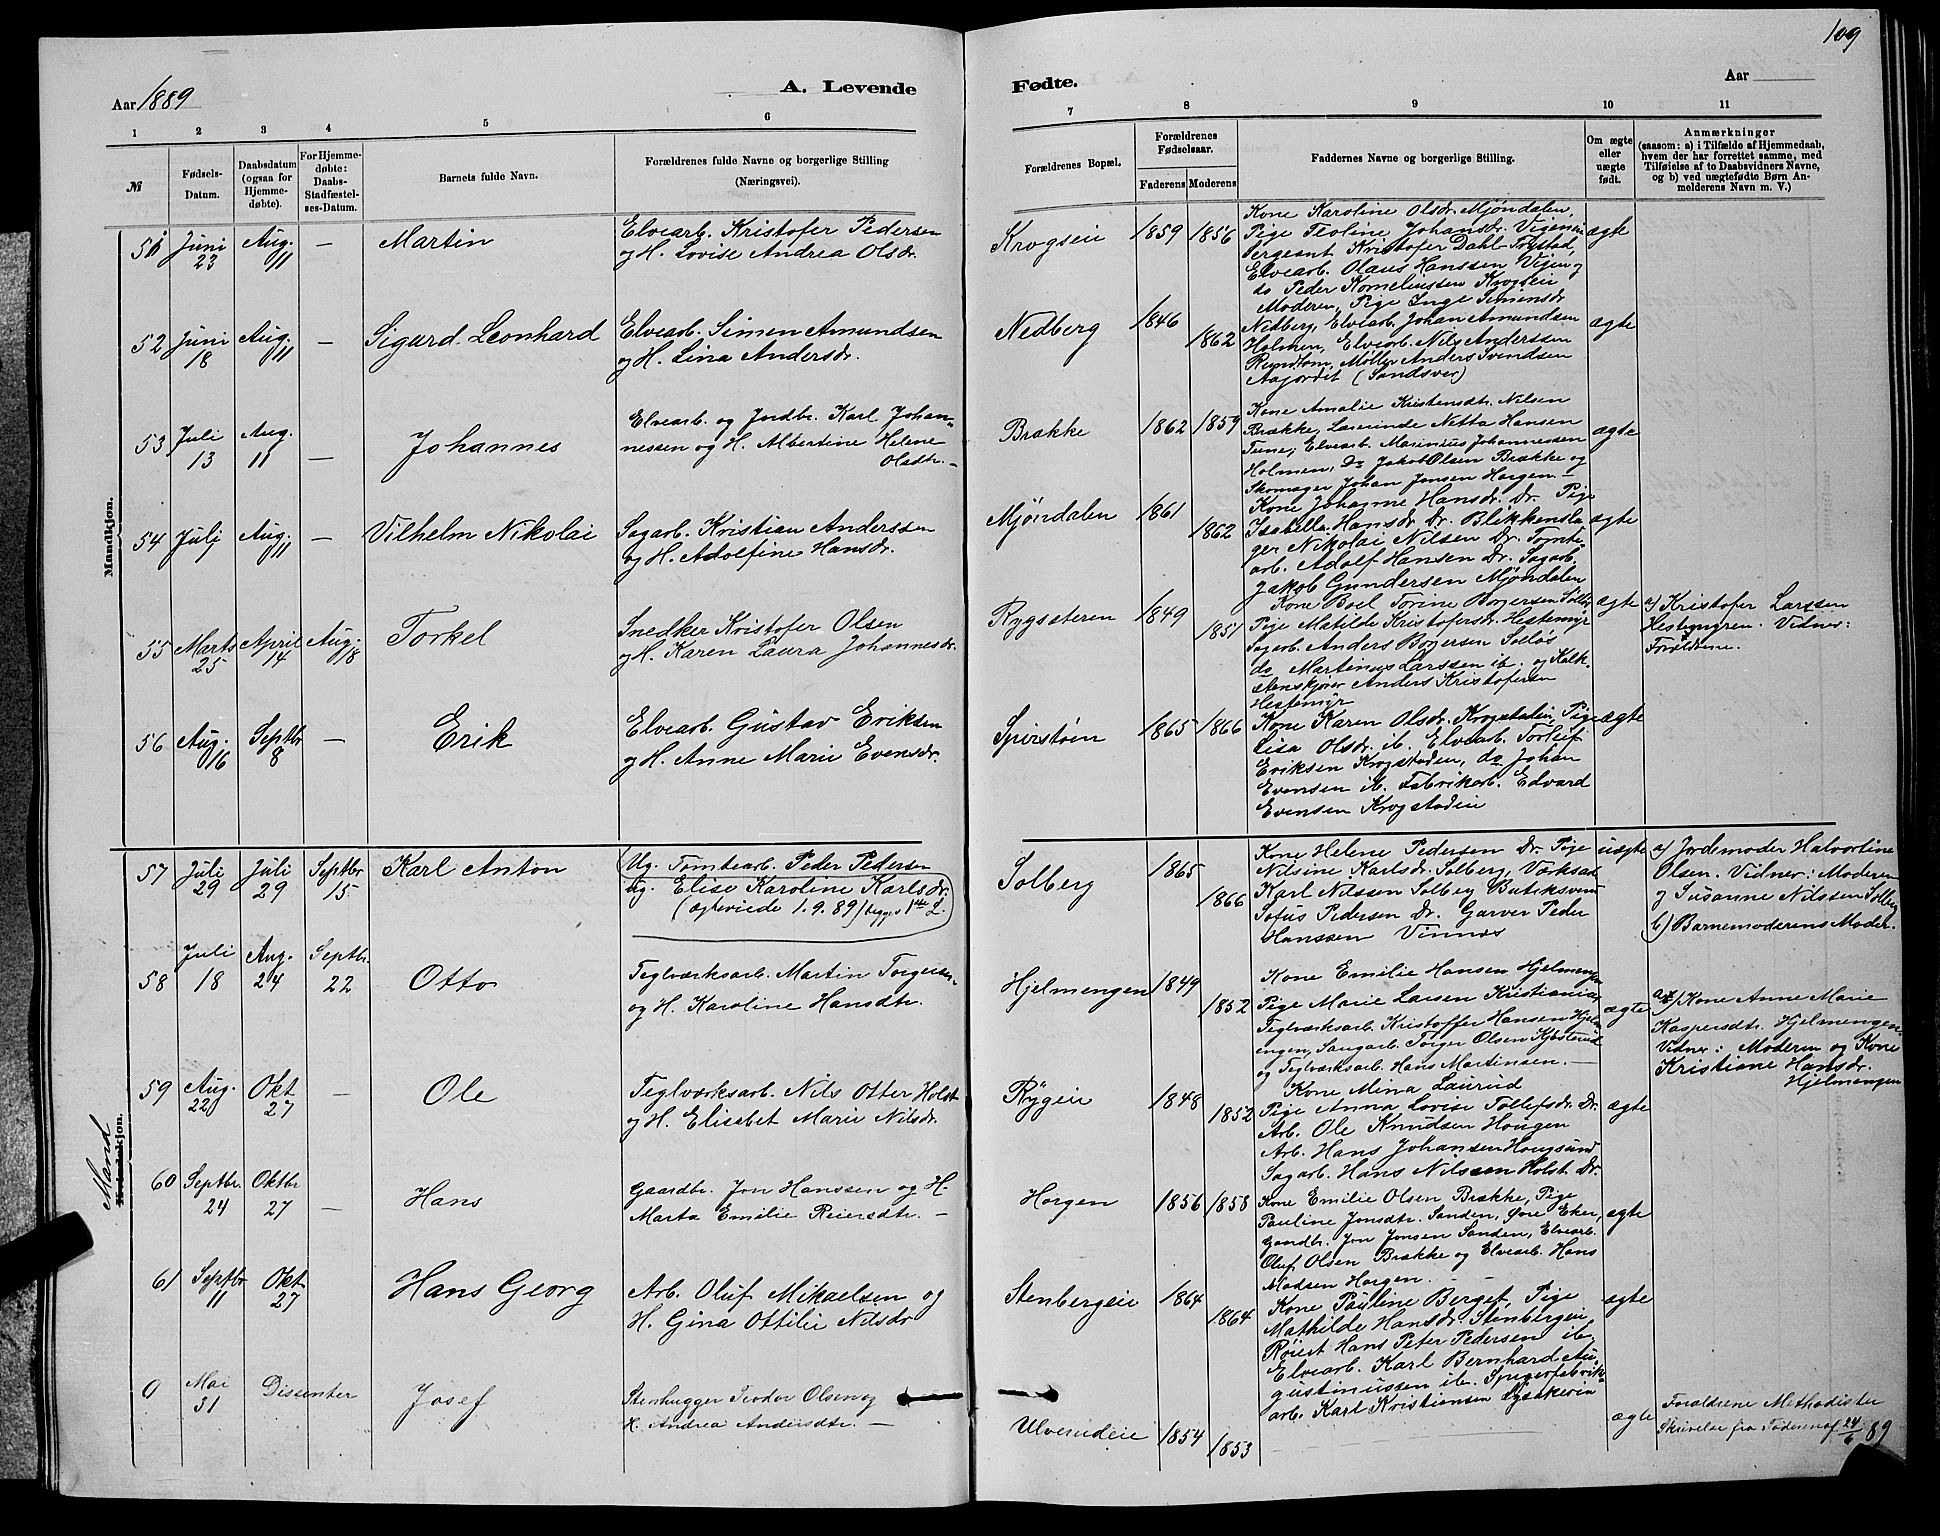 109
Aar 1889
A. Levende
Fødte.
Aar
1
2
3
4
5
6
7
8
9
10
11
№
Fødsels-
Datum.
Daabsdatum
(ogsaa for
Hjemme-
døbte).
For Hjemme-
døbte:
Daabs-
Stadfæstel-
ses-Datum.
Barnets fulde Navn.
Forældrenes fulde Navne og borgerlige Stilling
(Næringsvei).
Forældrenes Bopæl.
Forældrenes
Fødselsaar.
Faderens
Moderens
Faddernes Navne og borgerlige Stilling.
Om ægte
eller
uægte
født.
Anmærkninger
(saasom: a) i Tilfælde af Hjemmedaab,
hvem der har forrettet samme, med
Tilføielse af to Daabsvidners Navne,
og b) ved uægtefødte Børn An-
melderens Navn m. V.)
Mandkjøn.
51 Juni 23 Aug. 11 — Martin
Elvearb. Kristofer Pedersen
og H. Lovise Andrea Olsdr.
Krogseie 1859 1856
Kone Karoline Olsdr. Mjøndalen,
Pige Teoline Johansdr. Vigeneie
Sergeant Kristofer Dahl Trystad,
Elvearb. Olaus Hanssen Vijen og
do Peder Kornelinssen Krogseie
ægte
52 Juni 18 Aug. 11 — Sigard Leonhard
Elvearb. Simen Amundsen
og H. Lina Andersdr.
Nedberg 1846 1862
Moderen, Pige Inge Simensdr
Nedberg, Elvearb. Johan Amundsen
Holmen, Elvearb. Nils Anderssen
Rundtom, Møller Anders Svendsen
Aasjordet (Sandsver)
ægte
53 Juli 13 Aug. 11 — Johannes
Elvearb. og Jordbr. Karl Johan-
nessen og H. Albertine Helene
Olsdtr. —
Brække 1862 1859
Kone Amalie Kristensdtr. Nilsen
Brække, Lærerinde Netta Hansen
Tune, Elvearb. Marinius Johannessen
Holmen, Do Jakob Olsen Brække og
Skomager Johan Jonsen Horgen. —
ægte
54 Juli Aug. 11 — Vilhelm Nikolai
Sagarb. Kristian Anderssen
og H. Adolfine Hansdr.
Mjøndalen 1861 1862
Kone Johanne Hansdr. Dr. Pige
Isabella Hansdr. Dr. Blikkensla
ger Nikolai Nilsen Dr. Tomte
arb. Adolf Hansen Dr. Sagarb.
Jakob Gundersen Mjøndalen
ægte
55 Marts 25 April 14 Aug. 18 Torkel
Snedker Kristofer Olsen
og H. Karen Laura Johannesdr.
Rygsæteren 1849 1851
Kone Boel Torine Borgersen
Pige Matilde Kristofersdr. Hestemyr
Sagarb. Anders Borgersen Solløs
do Martinus Larssen ib. og Kalk-
stenskjører Anders Kristofersen
Hestemyr
ægte
a) Kristofer Larssen
Hestemyren. Vidner:
Forældrene.
56 Aug. 16 Septbr 8 — Erik
Elvearb. Gustav Eriksen
og H. Anne Marie Evensdr.
Spirstøen 1865 1866
Kone Karen Olsdr. Krogstadeie, Pige
Lisa Olsdr. ib. Elvearb. Torleif
Eriksen Krogstadeie, do Johan
Evensen ib. Fabrikarb. Edvard
Evensen Krogstadeie
ægte
Mand
Kvindekjøn.
57 Juli 29 Juli 29 Septbr 15. Karl Anton
Ug. Tomtearb. Peder Pedersen
ug. Elise Karoline Karlsdr.
(ægteviede 1.9.89) begges 1ste L.
Solberg 1865 1866
Kone Helene Pedersen Dr. Pige
Nilsine Karlsdr. Solberg, Værksar
Karl Nilssen Solberg Butiksvend
Sofus Pedersen Dr. Garver Peder
Hanssen Vinnes
uægte
a) Jordemoder Halvordine
Olsen. Vidner: Moderen
og Susanne Nilssen Solberg
b) Barnemoderens Moder.
58 Juli 18 Aug. 24 Septbr. 22 Otto
Teglværksarb. Martin Torgersen
og H. Karoline Hansdtr.
Hjelmengen 1849 1852
Kone Emilie Hansen Hjelmengen
Pige Marie Larsen Kristiania,
Teglværksarb. Kristoffer Hansen Hjelm
engen, Saugarb. Torger Olsen Kjøsterud
og Teglværksarb. Hans Martinsen. —
ægte
a) Kone Anne Marie
Kaspersdtr. Hjelmengen.
Vidner: Moderen og Kone
Kristiane Hansdr.
Hjelmengen
59 Aug. 22 Okt 27 — Ole
Teglværksarb. Nils Otter Holst
og H. Elisabet Marie Nilsdr.
Rygeie 1848 1852
Kone Mina Laurud
Pige Anna Lovise Tollefsdr. Dr.
Arb. Ole Knudsen Hougen
Arb. Hans Johansen Hougsund
Sagarb. Hans Nilssen Holst Dr.
ægte
60 Septbr. 24 Oktbr 27 — Hans
Gaardbr. Jon Hanssen og H.
Marta Emilie Reiersdtr. —
Horgen 1856 1858
Kone Emilie Olsen Brække, Pige
Pauline Jonsdtr. Sanden, Øvre Eker,
Gaardbr. Jon Jonsen Sanden, Elvearb.
Oluf Olsen Brække og Elvearb. Hans
Madsen Horgen. —
ægte
61 Septbr 11 Okt 27 Hans Georg
Arb. Oluf Mikaelsen og
H. Gina Ottilie Nilsdr
Stenbergeie 1864 1864
Kone Pauline Berget, Pige
Mathilde Hansdr. Stenbergeie
Røiert Hans Peter Pedersen ib.
Elvearb. Karl Bernhard Au-
gustinussen ib. Spigerfabrik-
arb. Karl Kristiansen Lysakereie
ægte
0 Mai 31 Dissenter Josef
Stenhugger Teodor Olsen og
H. Andrea Andersdtr. —
Ulverudeie 1854 1853
ægte
Forældrene Methodister
Skrivelse fra Faderen af 24/6 89